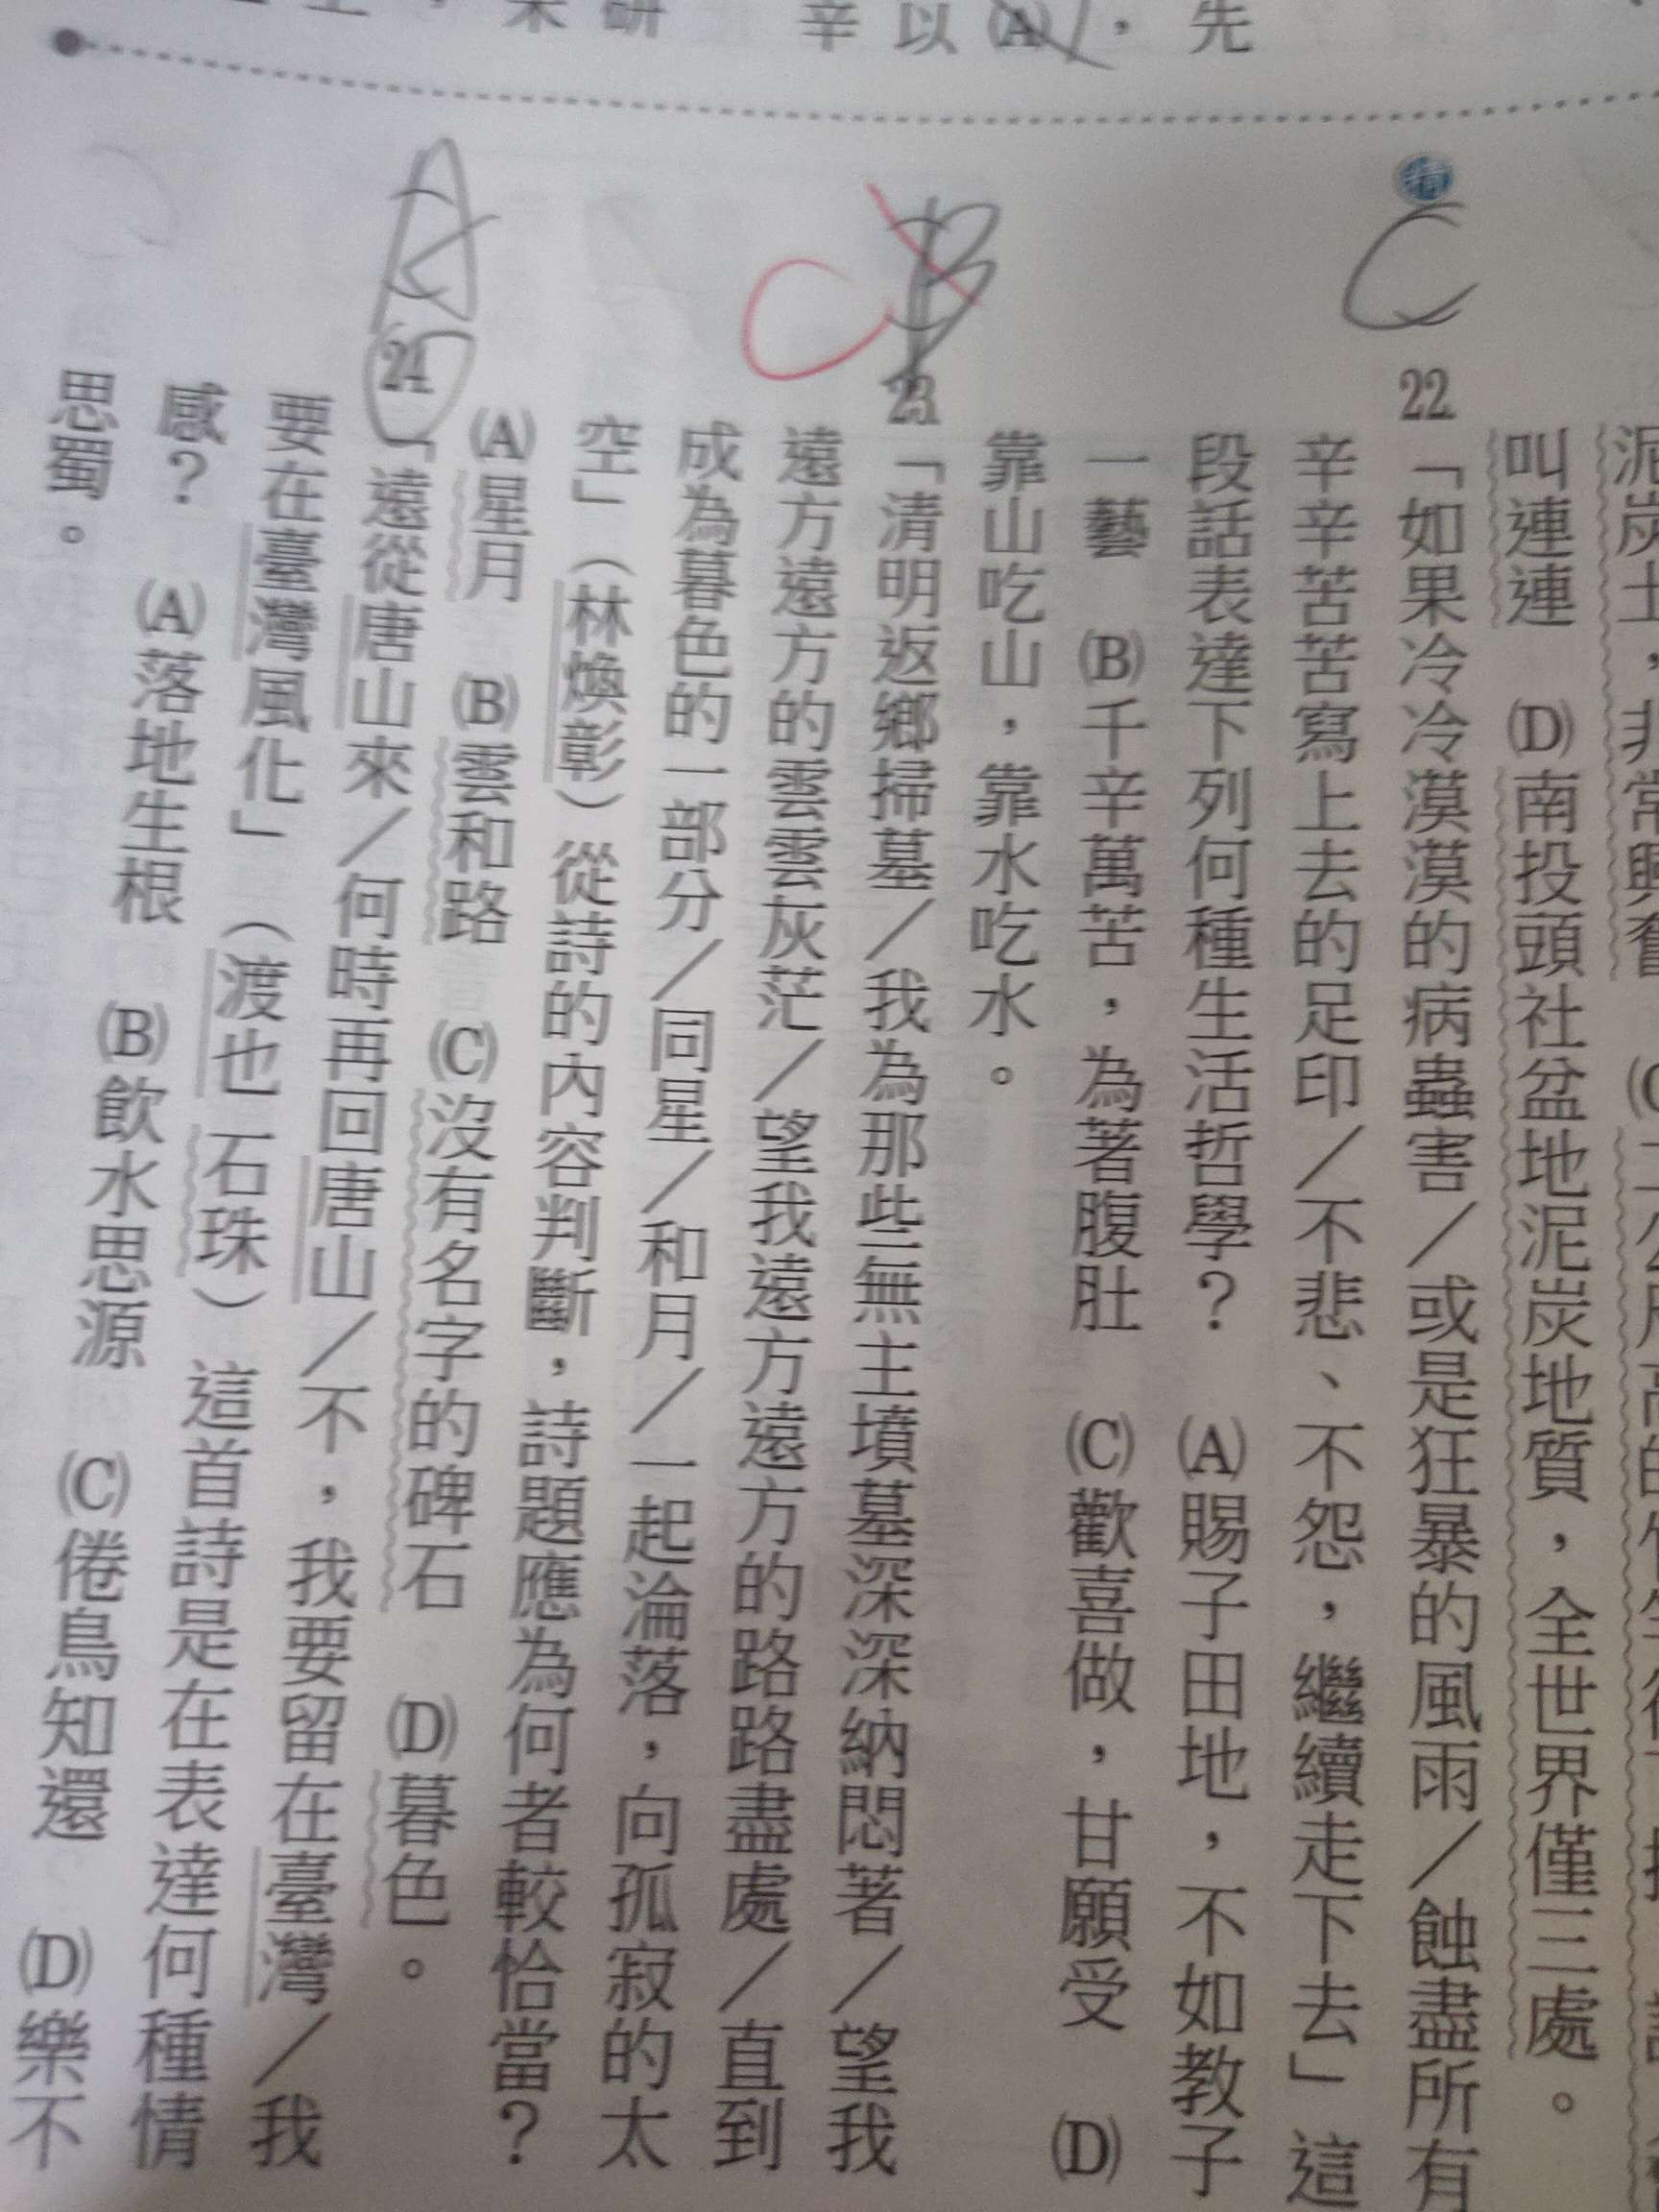 先
，
(A)
以
辛
研
叫連連　(D)南投頭社盆地泥炭地質，全世界僅三處。
C
22
「如果冷冷漠漠的病蟲害／或是狂暴的風雨／蝕盡所有
辛辛苦苦寫上去的足印／不悲、不怨，繼續走下去」這
段話表達下列何種生活哲學？　(A)賜子田地，不如教子
一藝　(B)千辛萬苦，為著腹肚　(C)歡喜做，甘願受　(D)
靠山吃山，靠水吃水。
B
C
23
「清明返鄉掃墓／我為那些無主墳墓深深納悶著／望我
遠方遠方的雲雲灰茫／望我遠方遠方的路路盡處／直到
成為暮色的一部分／同星／和月／一起淪落，向孤寂的太
空」（林煥彰）從詩的內容判斷，詩題應為何者較恰當？
(A)星月　(B)雲和路　(C)沒有名字的碑石　(D)暮色。
A
24
「遠從唐山來／何時再回唐山／不，我要留在臺灣／我
要在臺灣風化」（渡也　石珠）這首詩是在表達何種情
感？　(A)落地生根　(B)飲水思源　(C)倦鳥知還　(D)樂不
思蜀。